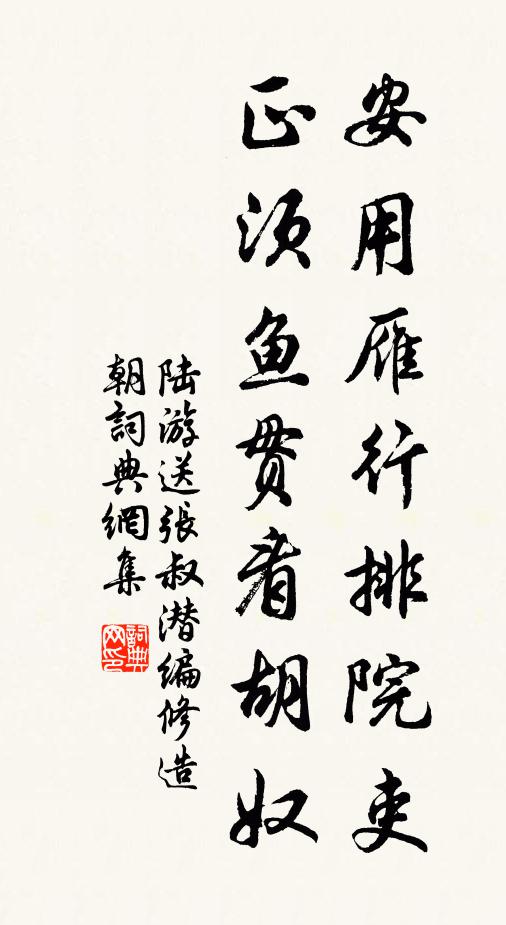 安用雁行排院吏
正须鱼贯看胡奴
陆游送張叔潜編修造
朝詞典網集
詞典网印